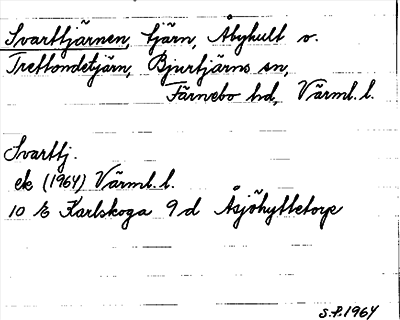 Svarttjärnen, tjärn, Åbykult o.
Trettondetjärn, Bjurtjärns sn,
Färnebo hd, Värml. l.
Svarttj.
ek (1964) Värml. l.
10 E Karlskoga 9 d Åsjöhyttetorp
S.P. 1964